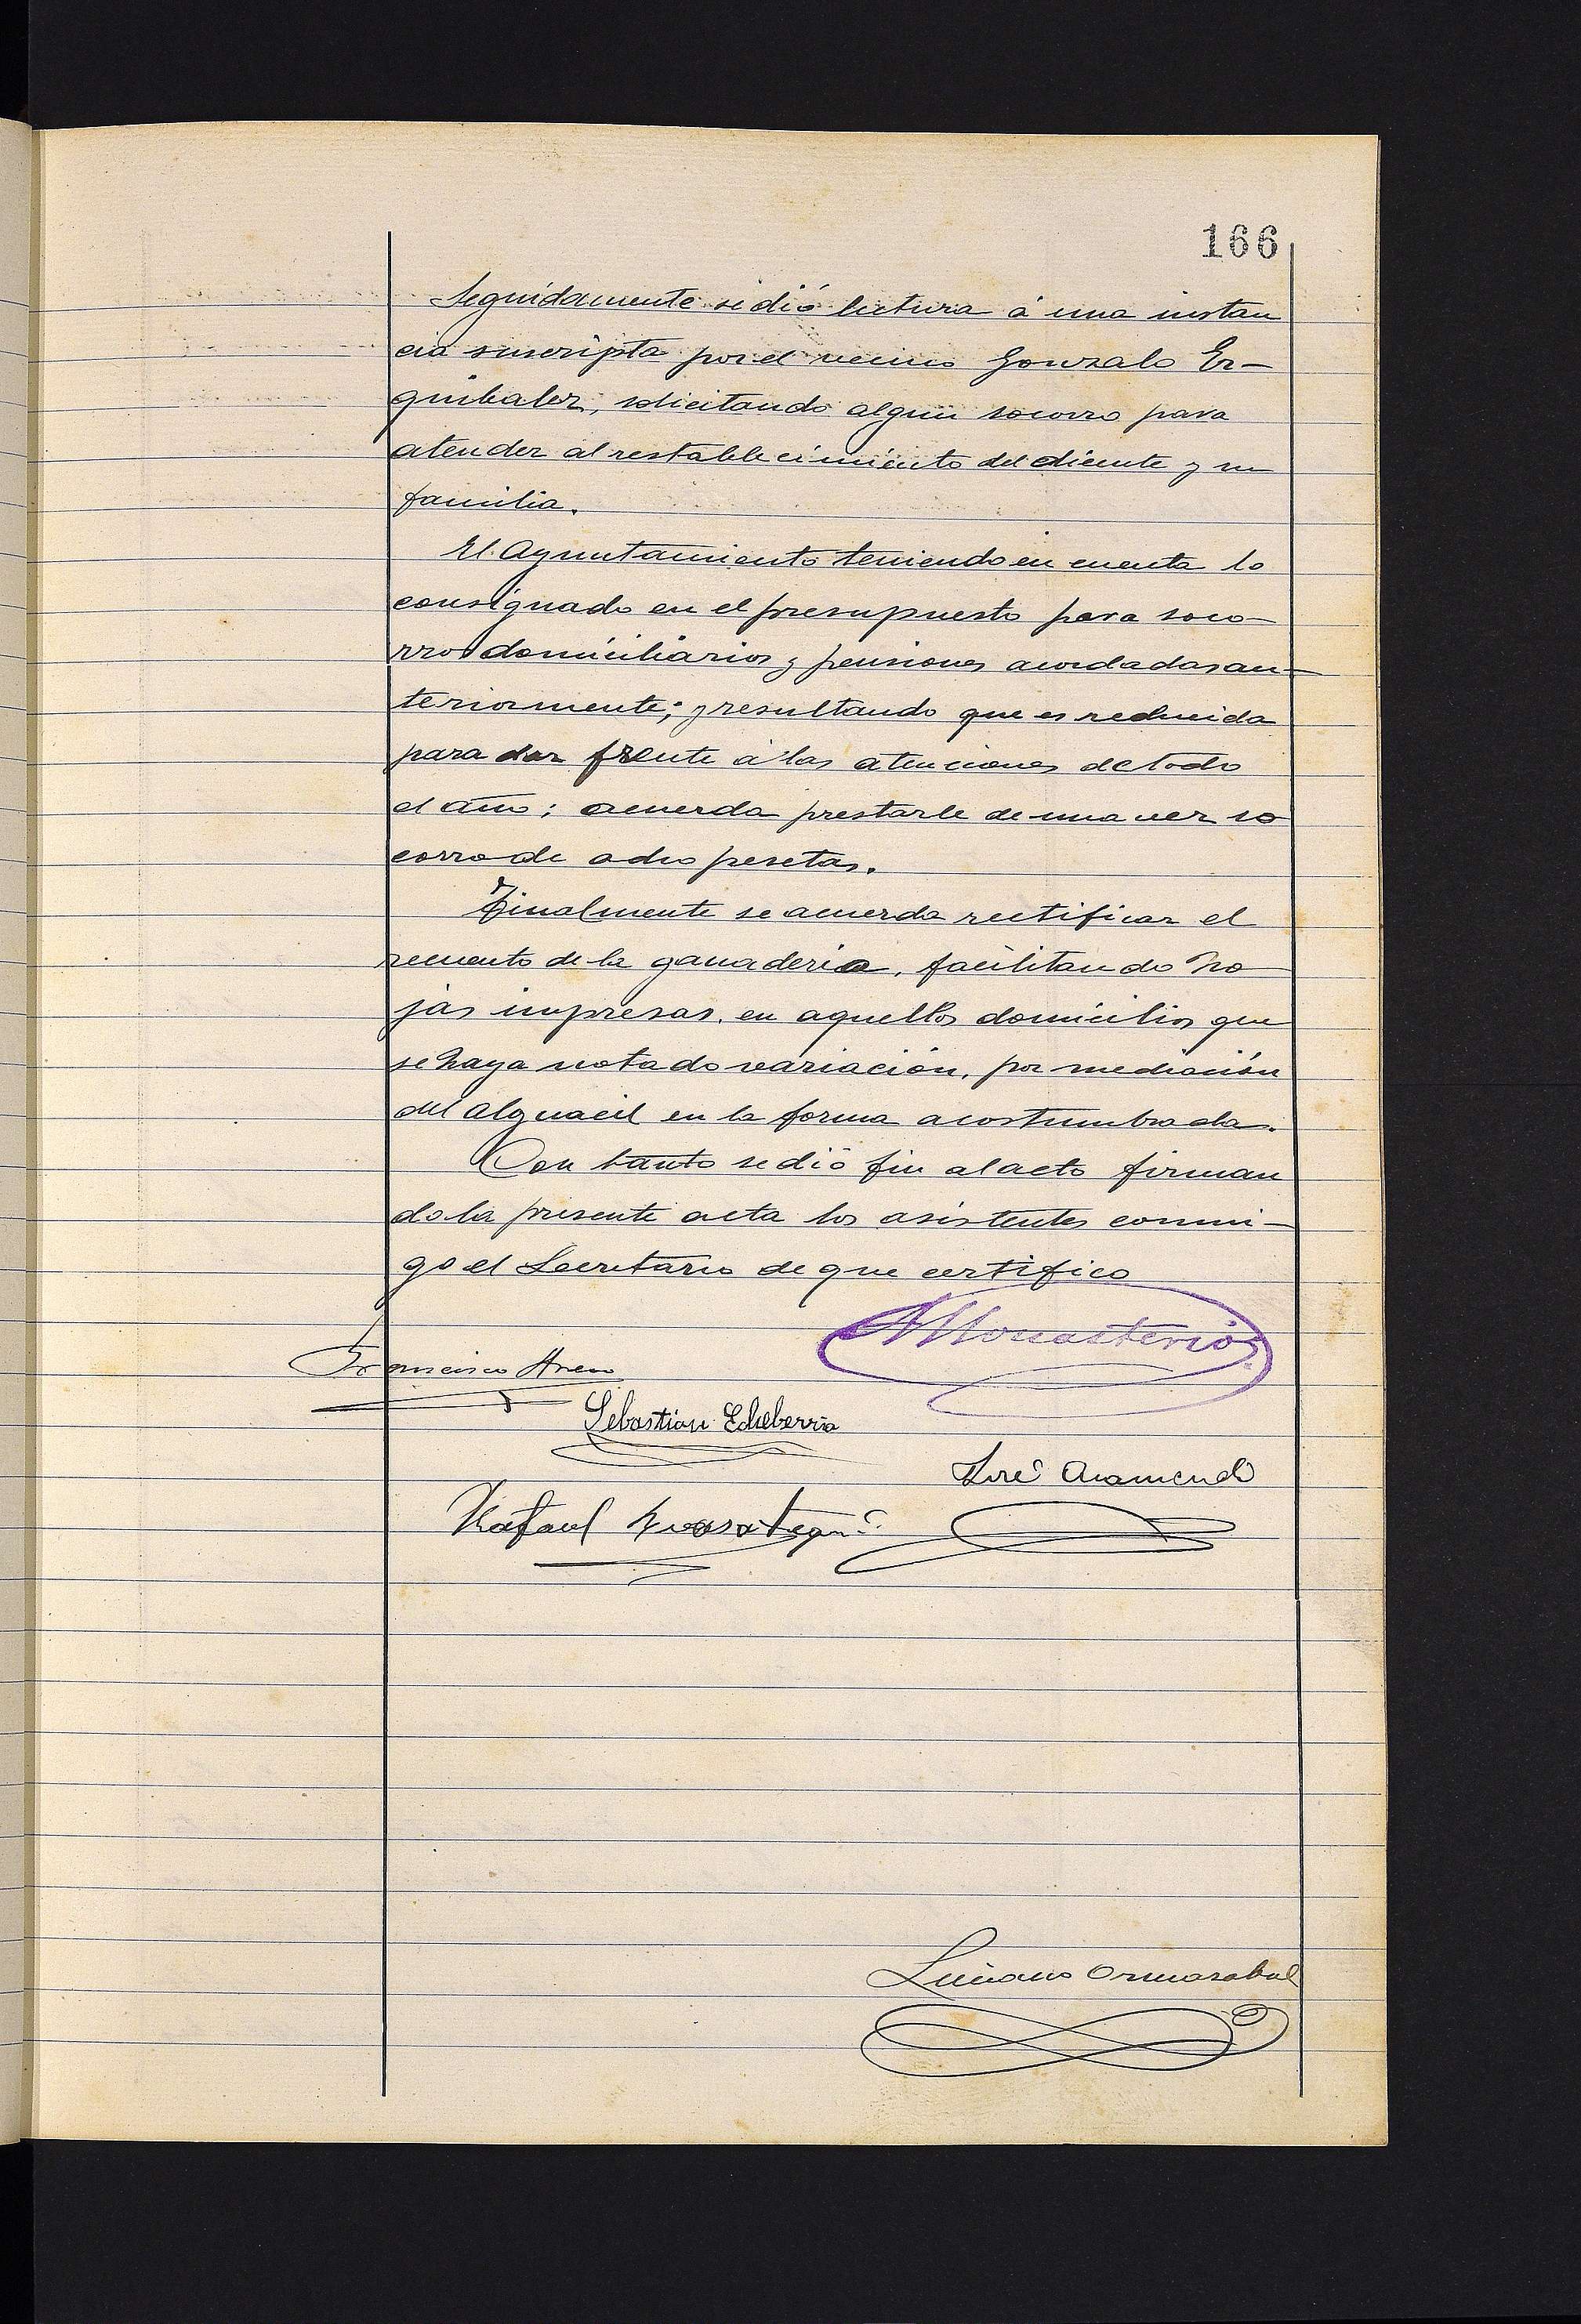 166
Seguidamente se dió lectura á una instan
cia suscripta por el vecino Gonzalo Er-
quibalez, solicitando algun socorro para
atender al restablecimiento del diciente y su
familia.
El Ayuntamiento teniendo en cuenta lo
consignado en el presupuesto para soco-
rros domiciliarios y pensiones acordadas an-
teriormente; y resultando que es reducida
para dar frente á las atenciones de todo
el año; acuerda prestarle de una vez so
corro de ocho pesetas.
Finalmente se acuerda rectificar el
recuento de la ganaderia, facilitando ho
jas impresas, en aquellos domicilios que
se haya notado variación, por mediación
del alguacil en la forma acostumbrada.
Con tanto se dió fin al acto firman
do la presente acta los asistentes conmi-
go el Secretario de que certifico
AMonasterio
Francisco
Sebastian Echeberria
José Aramendi
Rafael
Luciano Ormazabal